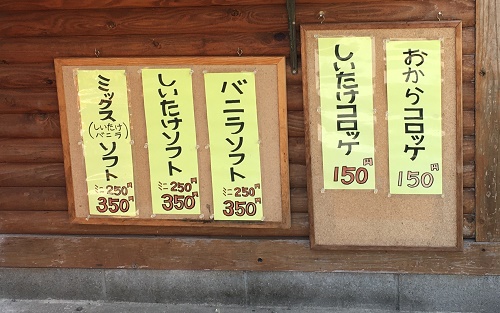 ミックス(しいたけバニラ)ソフト
ミニ250円
350円
しいたけソフト
ミニ250円
350円
バニラソフト
ミニ250円
350円
しいたけコロッケ
150円
おからコロッケ
150円